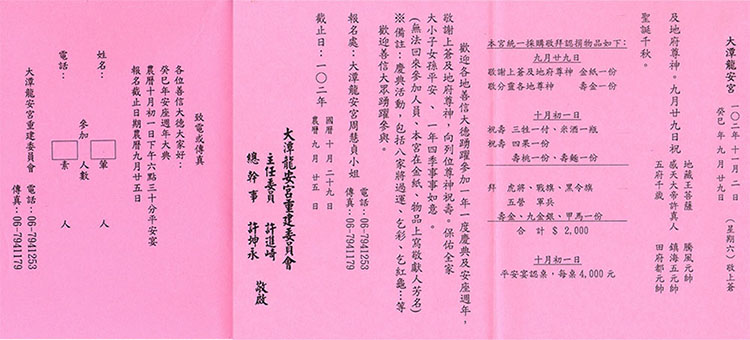 大潭龍安宮
一〇二年十一月二日 (星期六) 敬上蒼
癸巳年九月廿九
及地府尊神。九月廿九日祝
地藏王菩薩 騰風元帥
感天大帝許真人 鎮海五元帥
五府千歲 田府都元帥
聖誕千秋。
本宮統一採購敬拜認捐物品如下:
九月廿九日
敬謝上蒼及地府尊神 金紙一份
敬分靈各地尊神 壽金一份
十月初一日
祝壽 三牲一付、米酒一瓶
祝壽 四果一份
壽桃一份、壽麵一份
拜 虎將、戰旗、黑令旗
五營 軍兵
壽金、九金銀、甲馬一份
合計 $ 2,000
十月初一日
平安宴認桌,每桌4,000元
歡迎各地善信大德踴躍參加一年一度慶典及安座週年,
敬謝上蒼及地府尊神,向列位尊神祝壽。保佑全家
大小子女孫平安、一年四季事事如意。
(無法回來參加人員、本宮在金紙、物品上寫敬獻人芳名)
※備註:慶典活動,包括八家將過運、乞彩、乞紅龜…等
歡迎善信大眾踴躍參與。
報名處:大潭龍安宮周慧貞小姐 電話:06-7941253
傳真:06-7941179
截止日:一〇二年 國曆十月二十九日
農曆九月廿五日
大潭龍安宮重建委員會
主任委員 許進崎
總幹事 許坤永 敬啟
致電或傳真
各位善信大德大家好:
癸巳年安座週年大典
農曆十月初一日下午六點三十分平安宴
報名截止日期農曆九月廿五日
參加人數
姓名: 葷 人
電話: 素 人
大潭龍安宮重建委員會 電話:06-7941253
傳真:06-7941179